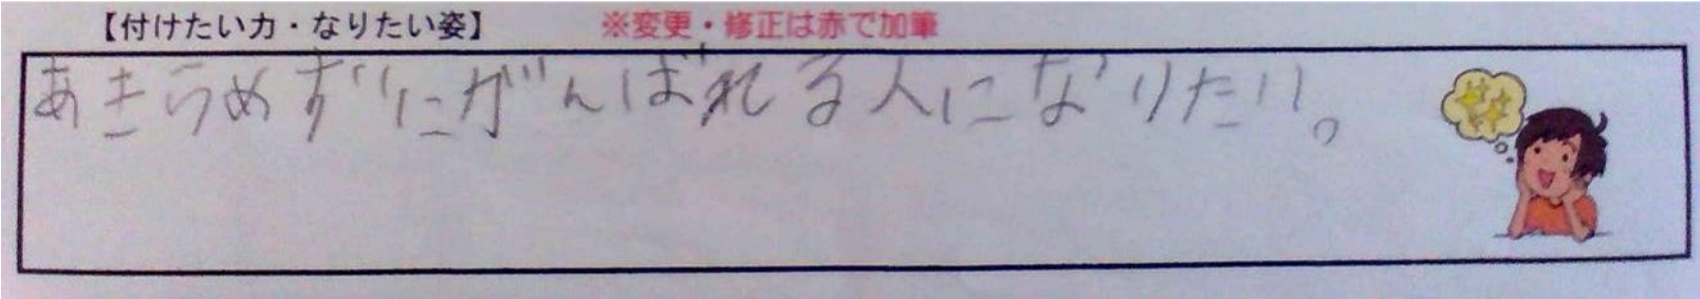 【付けたい力・なりたい姿】 ※変更・修正は赤で加筆
あきらめずにがんばれる人になりたい。